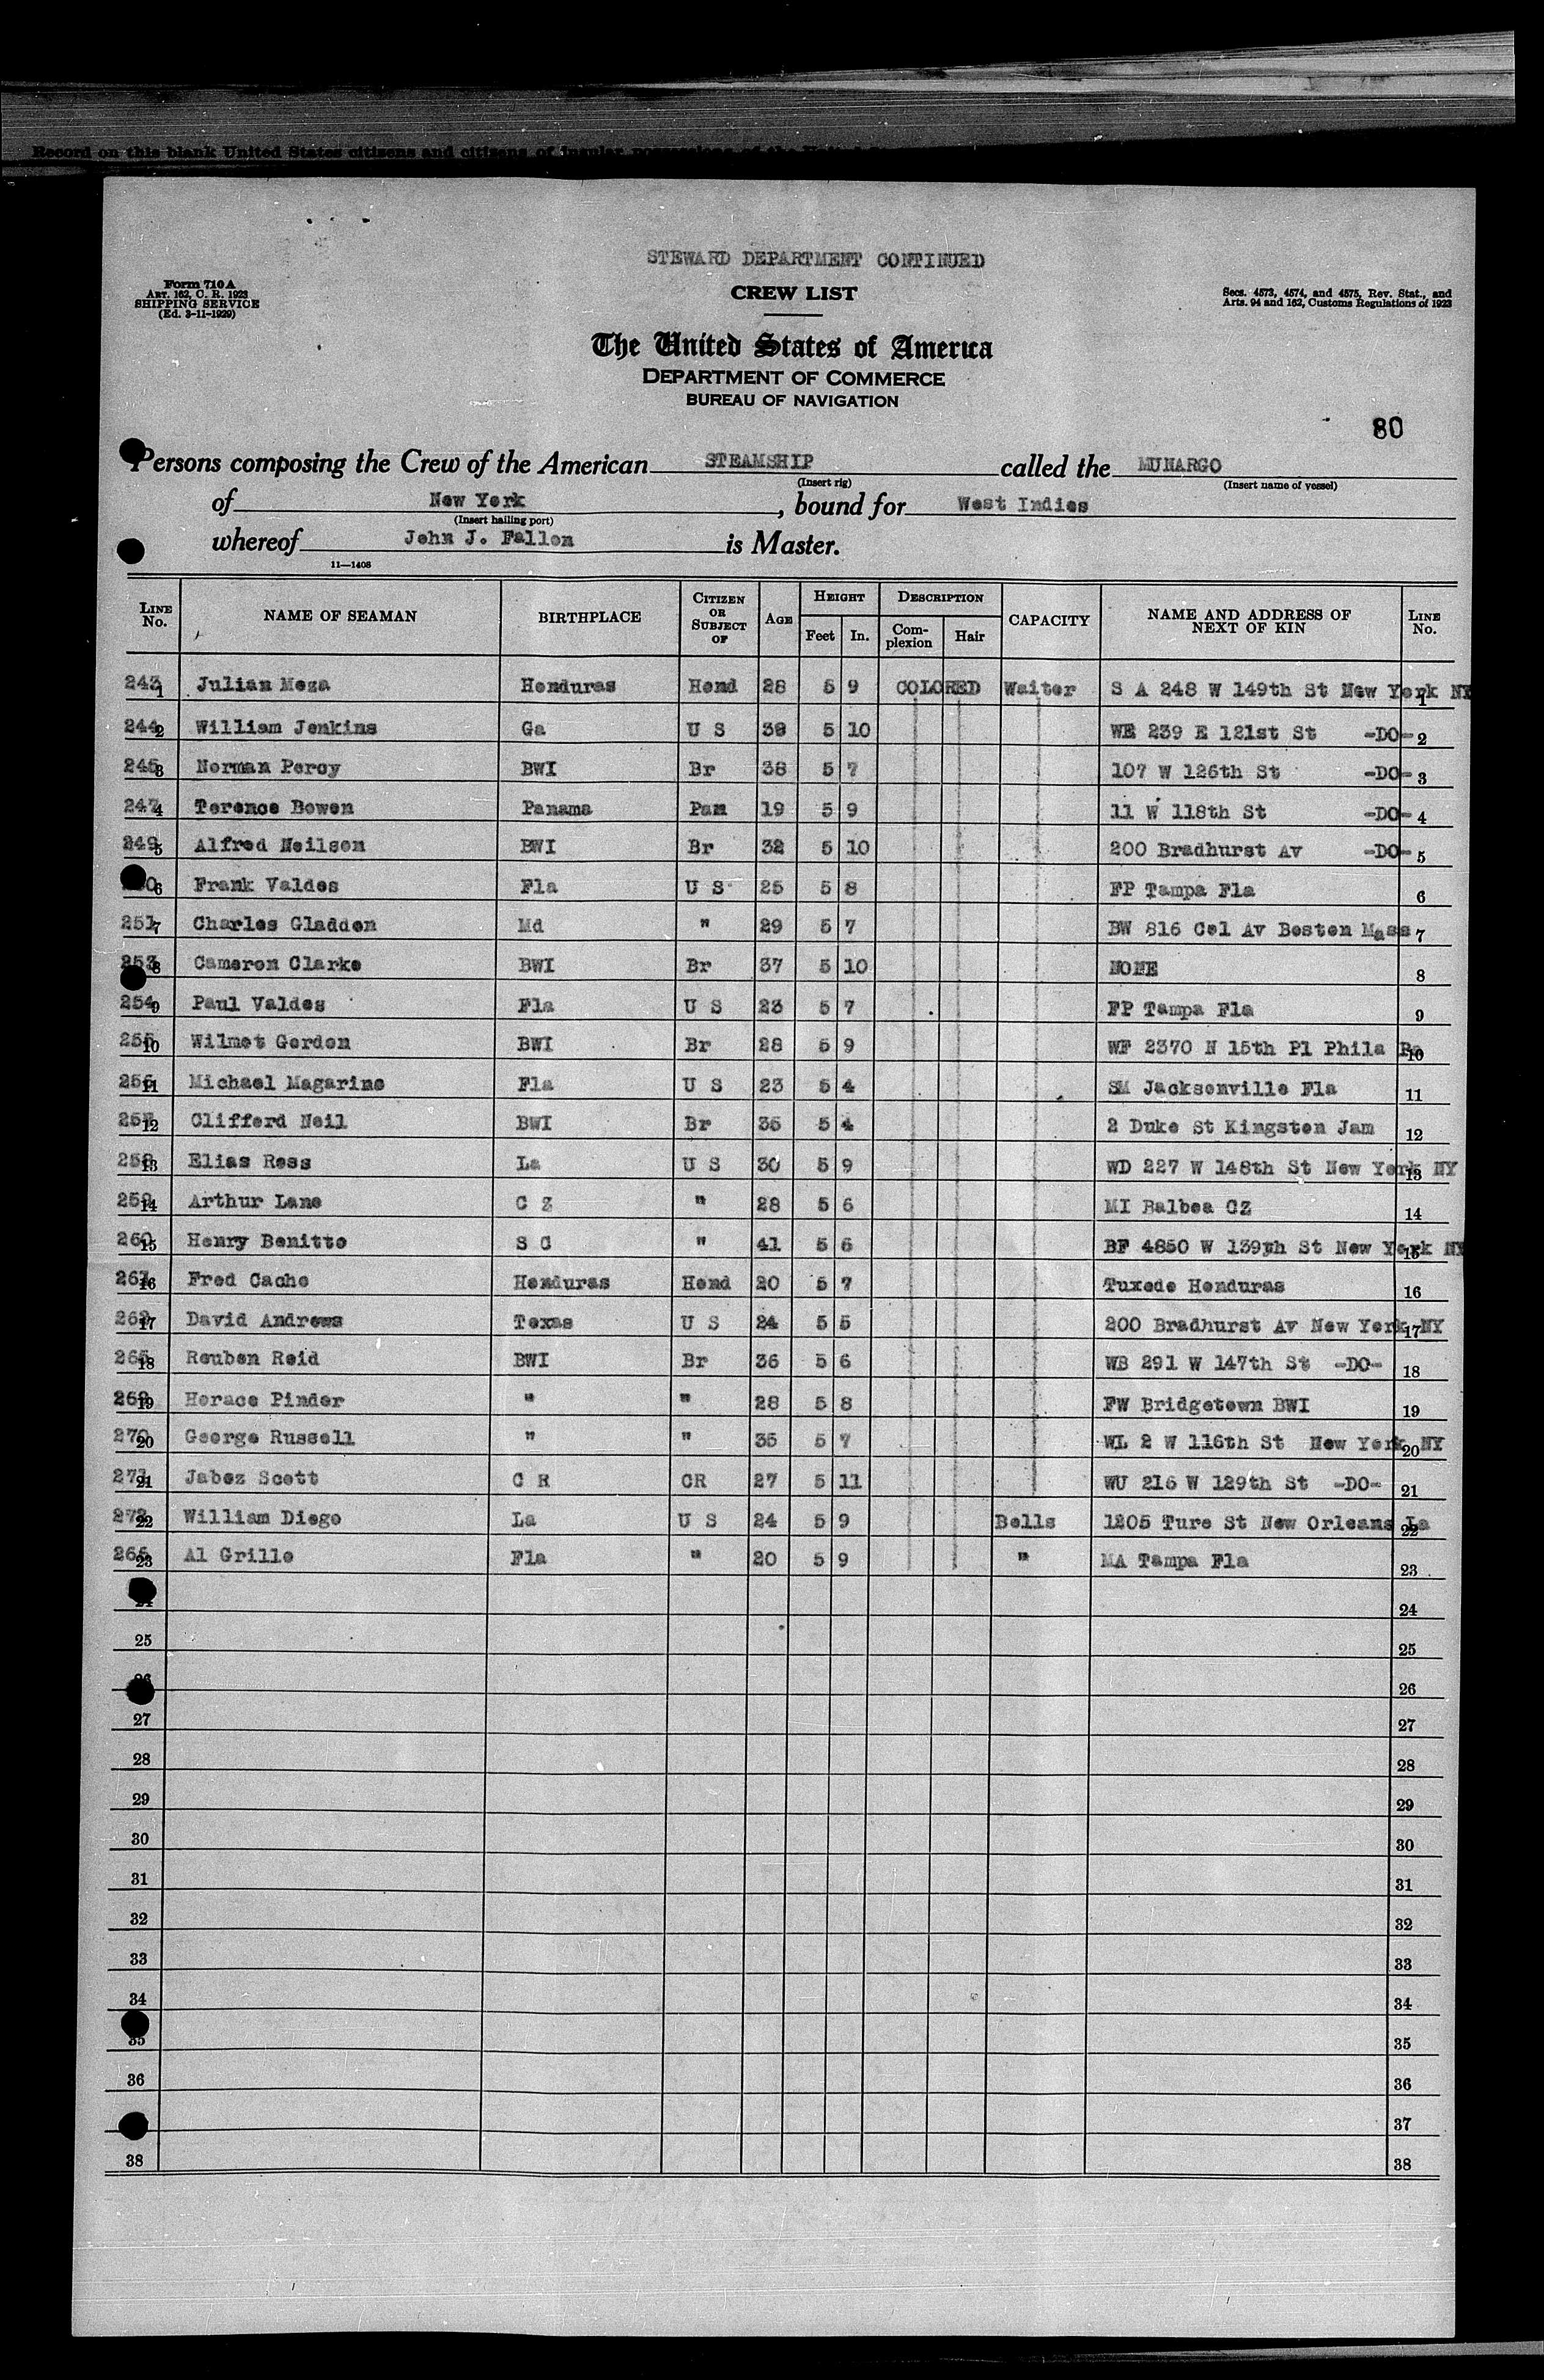 Record on this blank United States citizens and citizens of insular possessions of the United
STEWARD DEPARTMENT CONTINUED
Form 710 A
ART. 162, C. R. 1923
SHIPPING SERVICE
(Ed. 3-11-1929)
CREW LIST
Secs. 4573, 4574, and 4575, Rev. Stat., and
Arts. 94 and 162, Customs Regulations of 1923
The United States of America
DEPARTMENT OF COMMERCE
BUREAU OF NAVIGATION
80
Persons composing the Crew of the American STEAMSHIP called the MUNARGO
(Insert rig) (Insert name of vessel)
of New York, bound for West Indies
(Insert hailing port)
whereof John J. Fallon is Master.
11—1408
LINE No. NAME OF SEAMAN BIRTHPLACE CITIZEN OR SUBJECT OF AGE HEIGHT Feet In. DESCRIPTION Complexion Hair CAPACITY NAME AND ADDRESS OF NEXT OF KIN LINE No.
243 1 Julian Meza Honduras Hond 28 5 9 COLORED Waiter S A 248 W 149th St New York NY 1
244 2 William Jenkins Ga U S 38 5 10 WE 239 E 121st St -DO- 2
245 3 Norman Percy BWI Br 38 5 7 107 W 126th St -DO- 3
247 4 Terence Bowen Panama Pan 19 5 9 11 W 118th St -DO- 4
249 5 Alfred Neilson BWI Br 32 5 10 200 Bradhurst Av -DO- 5
6 Frank Valdes Fla U S 25 5 8 FP Tampa Fla 6
251 7 Charles Gladden Md " 29 5 7 BW 816 Col Av Boston Mass 7
253 8 Cameron Clarke BWI Br 37 5 10 NONE 8
254 9 Paul Valdes Fla U S 23 5 7 FP Tampa Fla 9
255 10 Wilmot Gordon BWI Br 28 5 9 WF 2370 N 15th Pl Phila Pa 10
256 11 Michael Magarino Fla U S 23 5 4 SM Jacksonville Fla 11
257 12 Clifford Neil BWI Br 35 5 4 2 Duke St Kingston Jam 12
258 13 Elias Ross La U S 30 5 9 WD 227 W 148th St New York NY 13
259 14 Arthur Lane C Z " 28 5 6 MI Balboa CZ 14
260 15 Henry Benitto S C " 41 5 6 BF 4850 W 139th St New York NY 15
261 16 Fred Cacho Honduras Hond 20 5 7 Tuxedo Honduras 16
262 17 David Andrews Texas U S 24 5 5 200 Bradhurst Av New York NY 17
265 18 Reuben Reid BWI Br 36 5 6 WB 291 W 147th St -DO- 18
268 19 Horace Pinder " " 28 5 8 FW Bridgetown BWI 19
270 20 George Russell " " 35 5 7 WL 2 W 116th St New York NY 20
271 21 Jabez Scott C R CR 27 5 11 WU 216 W 129th St -DO- 21
272 22 William Diego La U S 24 5 9 Bells 1205 Ture St New Orleans La 22
265 23 Al Grillo Fla " 20 5 9 " MA Tampa Fla 23
24 24
25 25
26 26
27 27
28 28
29 29
30 30
31 31
32 32
33 33
34 34
35 35
36 36
37
38 38